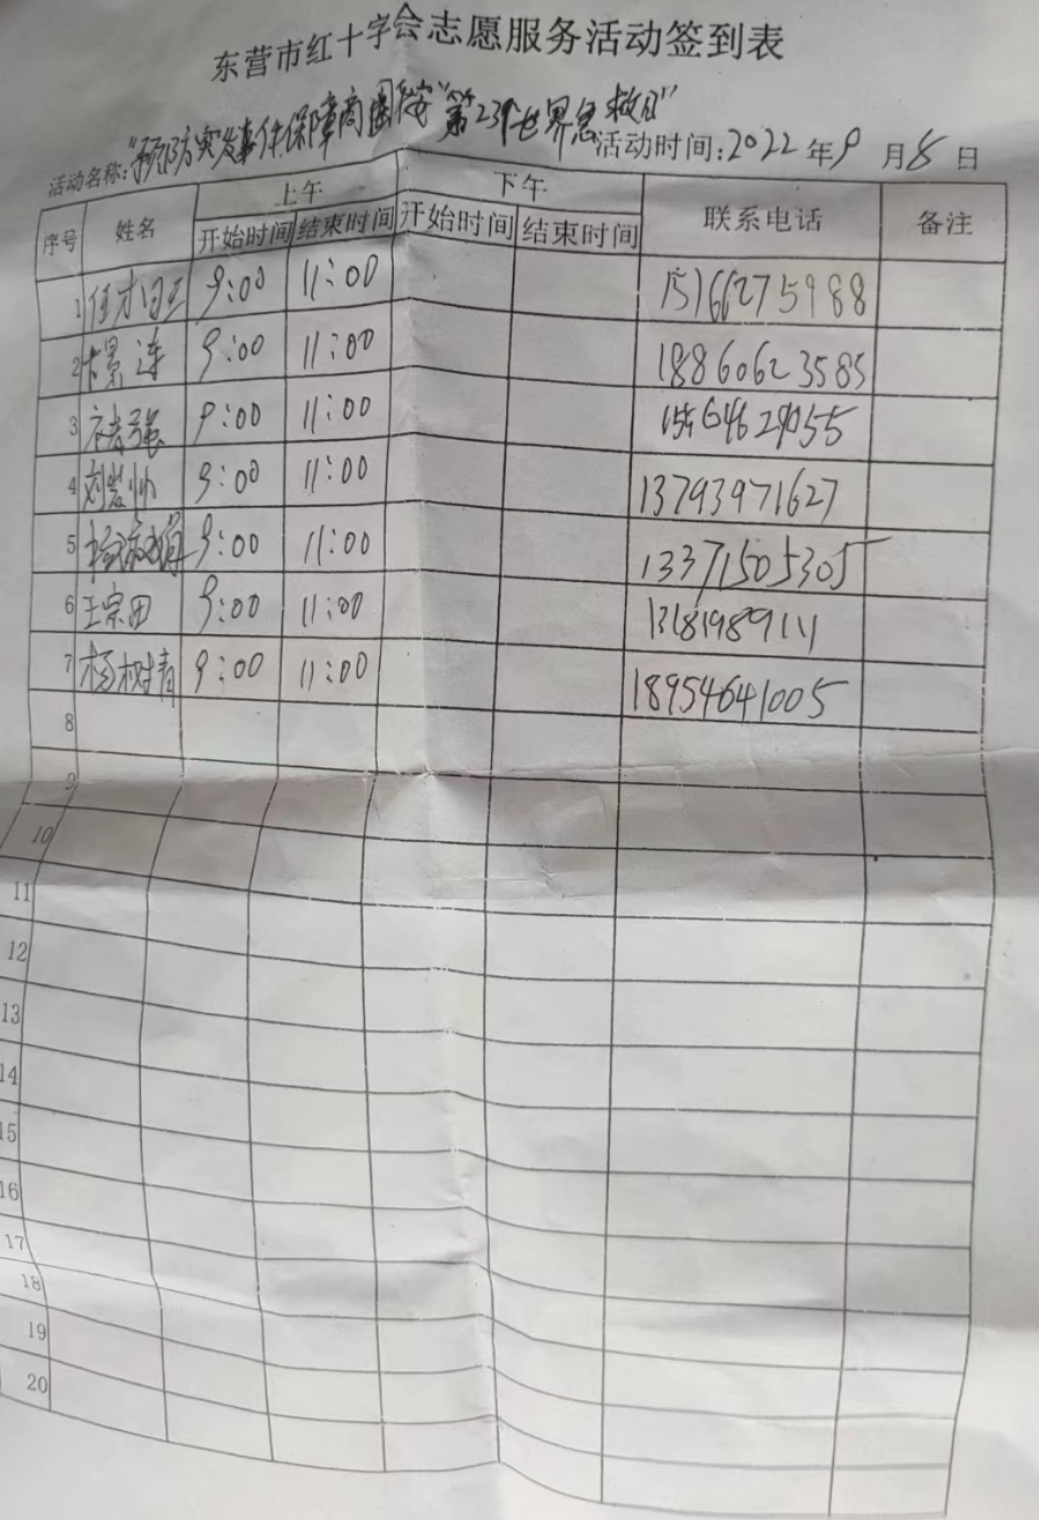 东营市红十字会志愿服务活动签到表
活动名称:"预防突发事件保障商圈平安"第23个世界急救日"
活动时间:2022年9月8日
序号 姓名 上午 下午 联系电话 备注
开始时间 结束时间 开始时间 结束时间
1 9:00 11:00 15166275988
2 景连 9:00 11:00 18860623585
3 褚强 9:00 11:00
4 刘岩帅 9:00 11:00 13793971627
5 9:00 11:00 13371505305
6 王宗田 9:00 11:00 13181989111
7 杨树青 9:00 11:00 18954641005
8
9
10
11
12
13
14
15
16
17
18
19
20